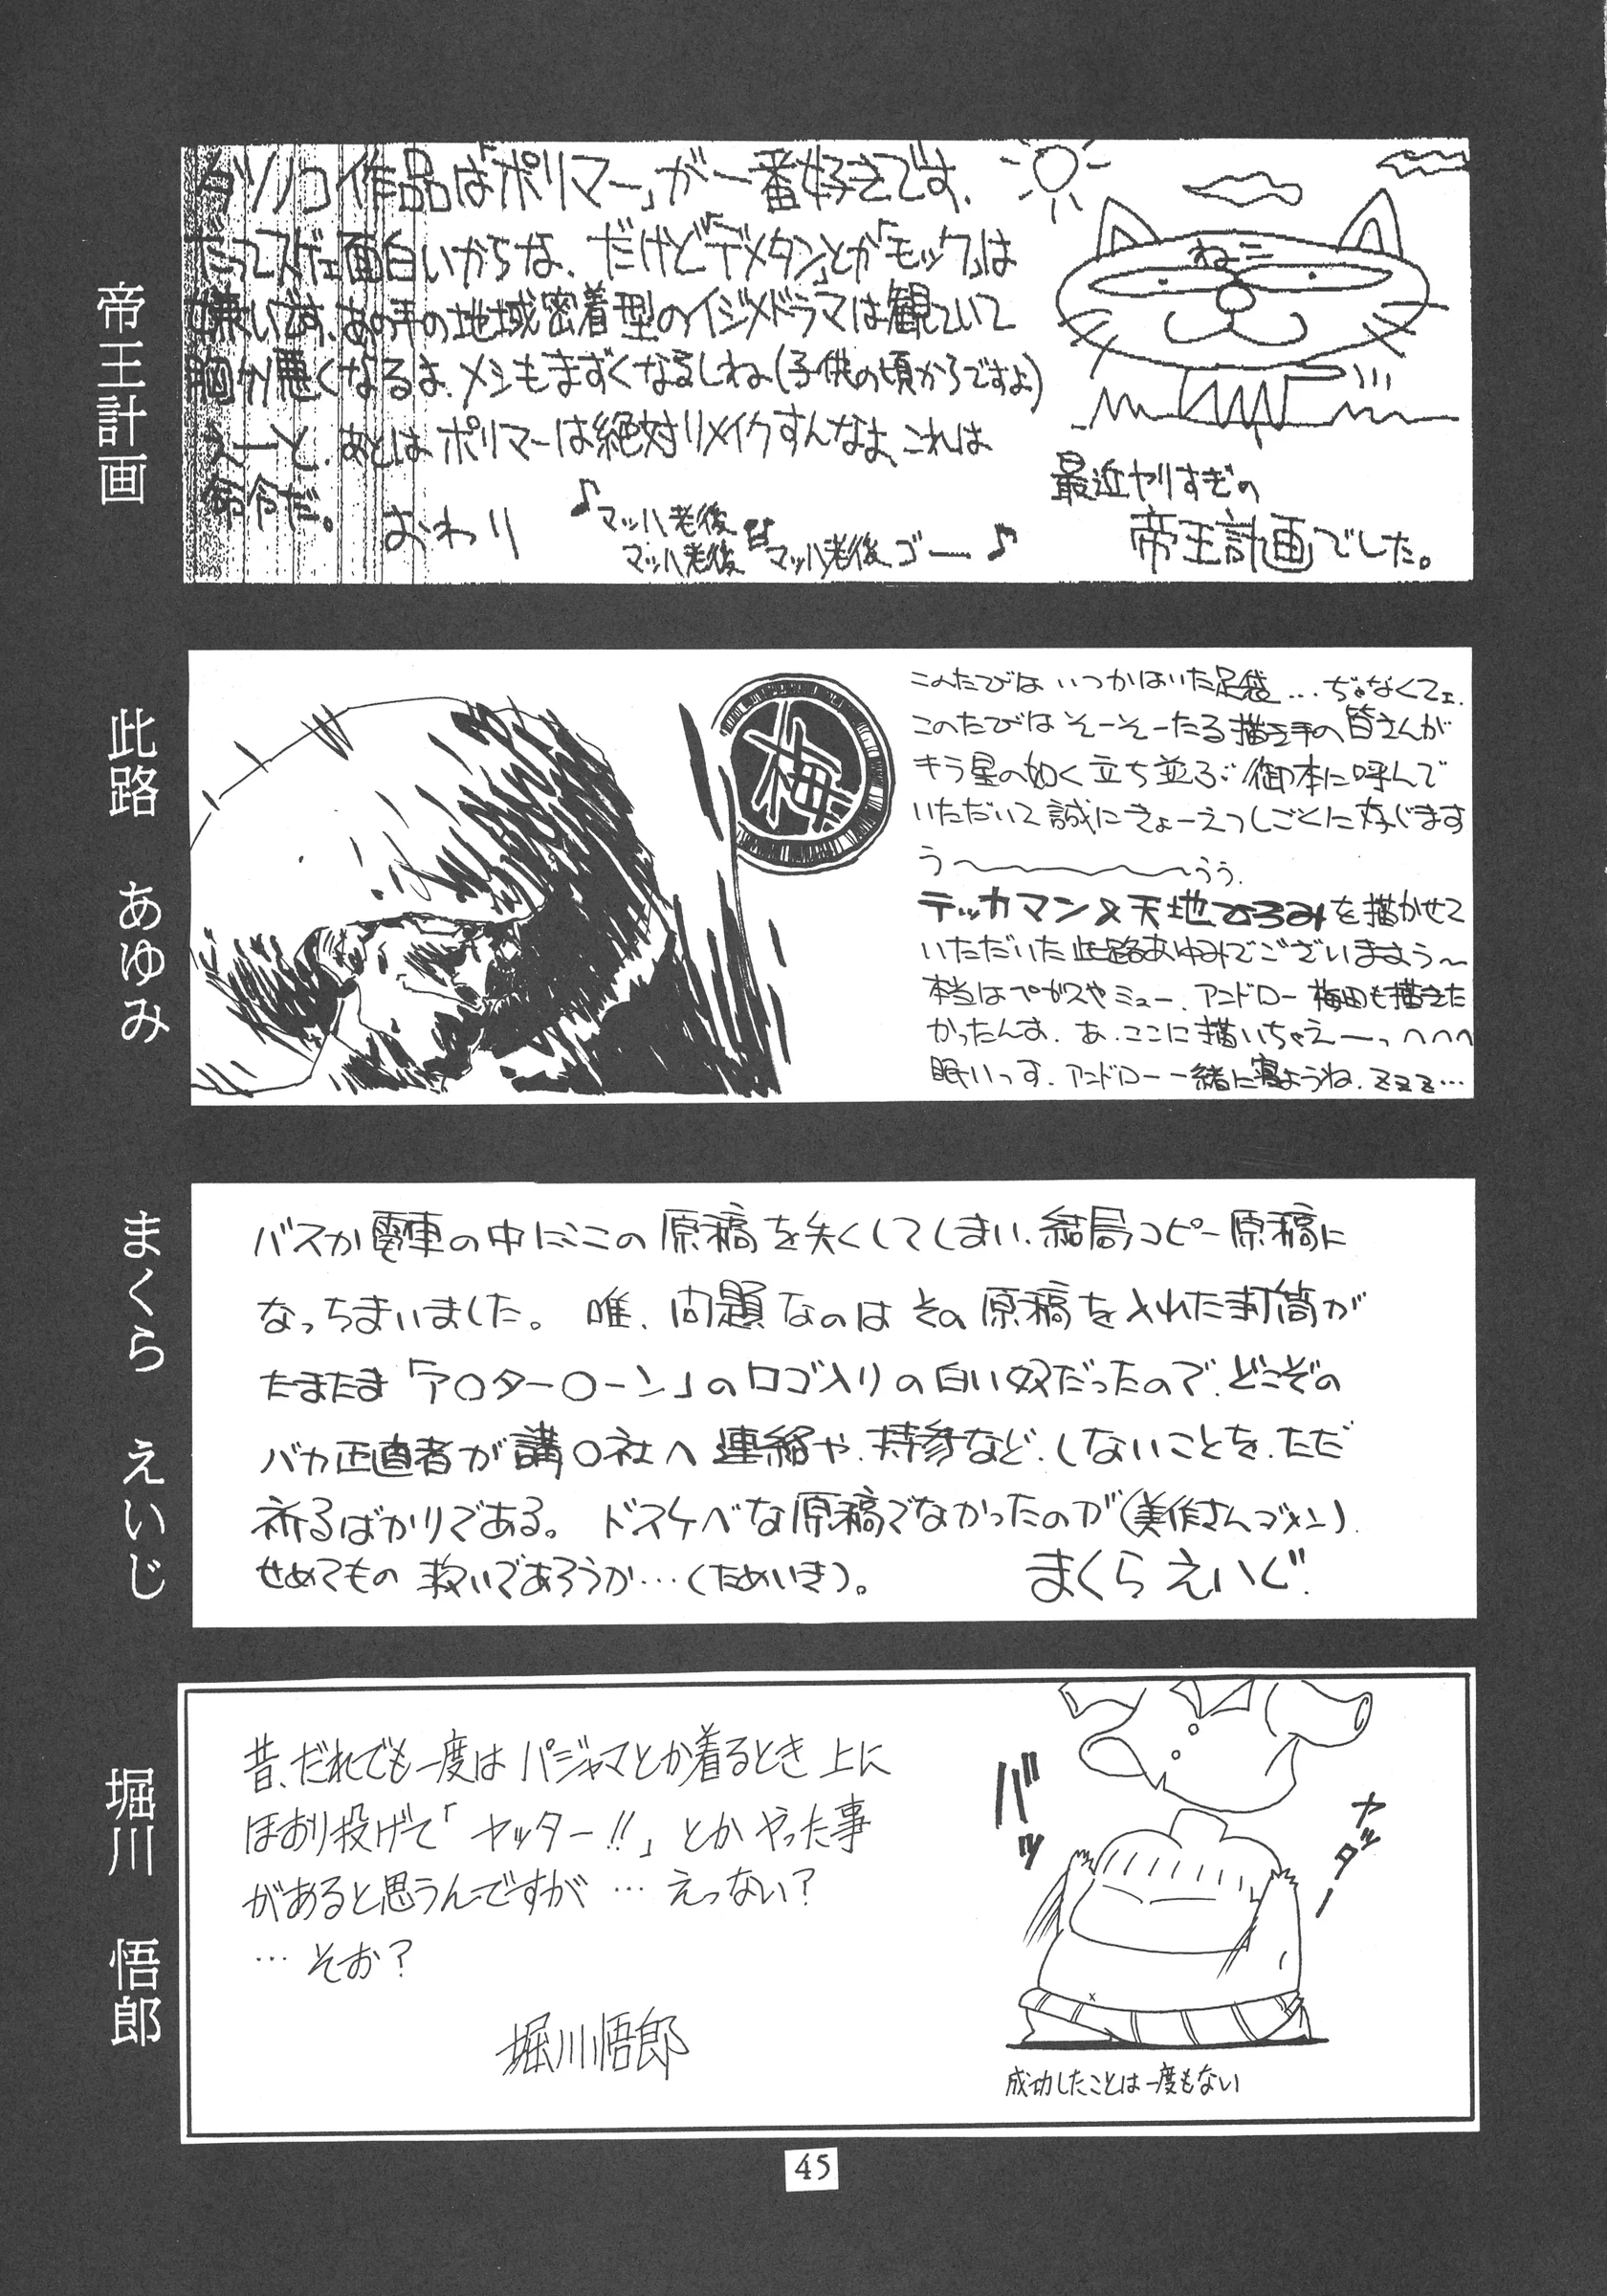 帝王計画
タツノコ作品は「ポリマー」が一番好きです、
だってズバ面白いからな、だけど「デメタン」とか「モック」は
嫌いです、あの手の地域密着型のイジメドラマは観ていて
胸が悪くなるよ、メシもまずくなるしね(子供の頃からですよ)
えーと、あとはポリマーは絶対リメイクすんなよ、これは
命令だ。
おわり
♪マッハ老後
マッハ老後
マッハ老後 ゴー♪
ねこ
最近ヤリすぎの
帝王計画でした。
此路 あゆみ
梅
このたびは いつかはいた足袋…ぢゃなくてェ、
このたびは そーそーたる描き手の皆さんが
キラ星の如く立ち並ぶ御本に呼んで
いただいて誠にきょーえつしごくに存じます
う〜〜〜うう、
テッカマン×天地ひろみを描かせて
いただいた此路あゆみでございますう〜
本当はペガスやミュー、アンドロー梅田も描きた
かったんよ、あ、ここに描いちゃえーっ へへへ
眠いっす、アンドロー一緒に寝ようね、zzz…
まくら えいじ
バスか電車の中にこの原稿を失くしてしまい、結局コピー原稿に
なっちまいました。唯、問題なのはその原稿を入れた封筒が
たまたま「ア○ター○ーン」のロゴ入りの白い奴だったので、どこぞの
バカ正直者が講○社へ連絡や、持参など、しないことを、ただ
祈るばかりである。ドスケベな原稿でなかったのが(美作さんゴメン)、
せめてもの救いであろうか…(ためいき)。
まくらえいじ.
堀川 悟郎
昔、だれでも一度はパジャマとか着るとき上に
ほおり投げて「ヤッター!!」とかやった事
があると思うんですが…えっない?
…そお?
堀川悟郎
バッ
ヤッター
成功したことは一度もない
45